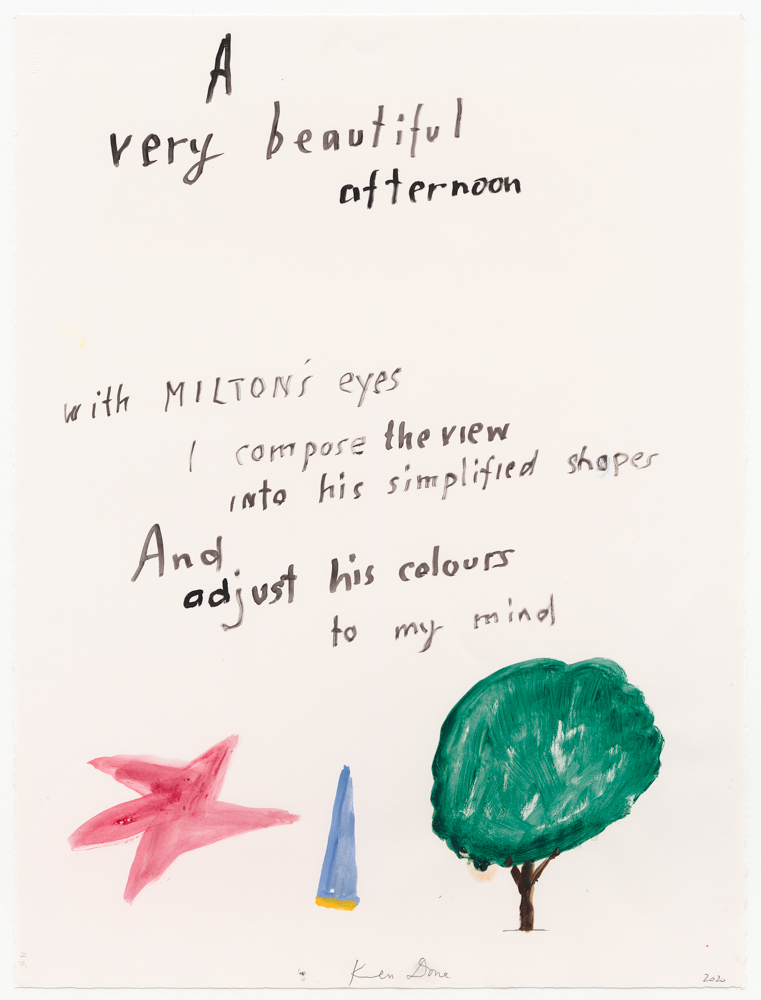 A
very beautiful
afternoon
with MILTON'S eyes
I compose the view
into his simplified shapes
And
adjust his colours
to my mind
Ken Done
2020